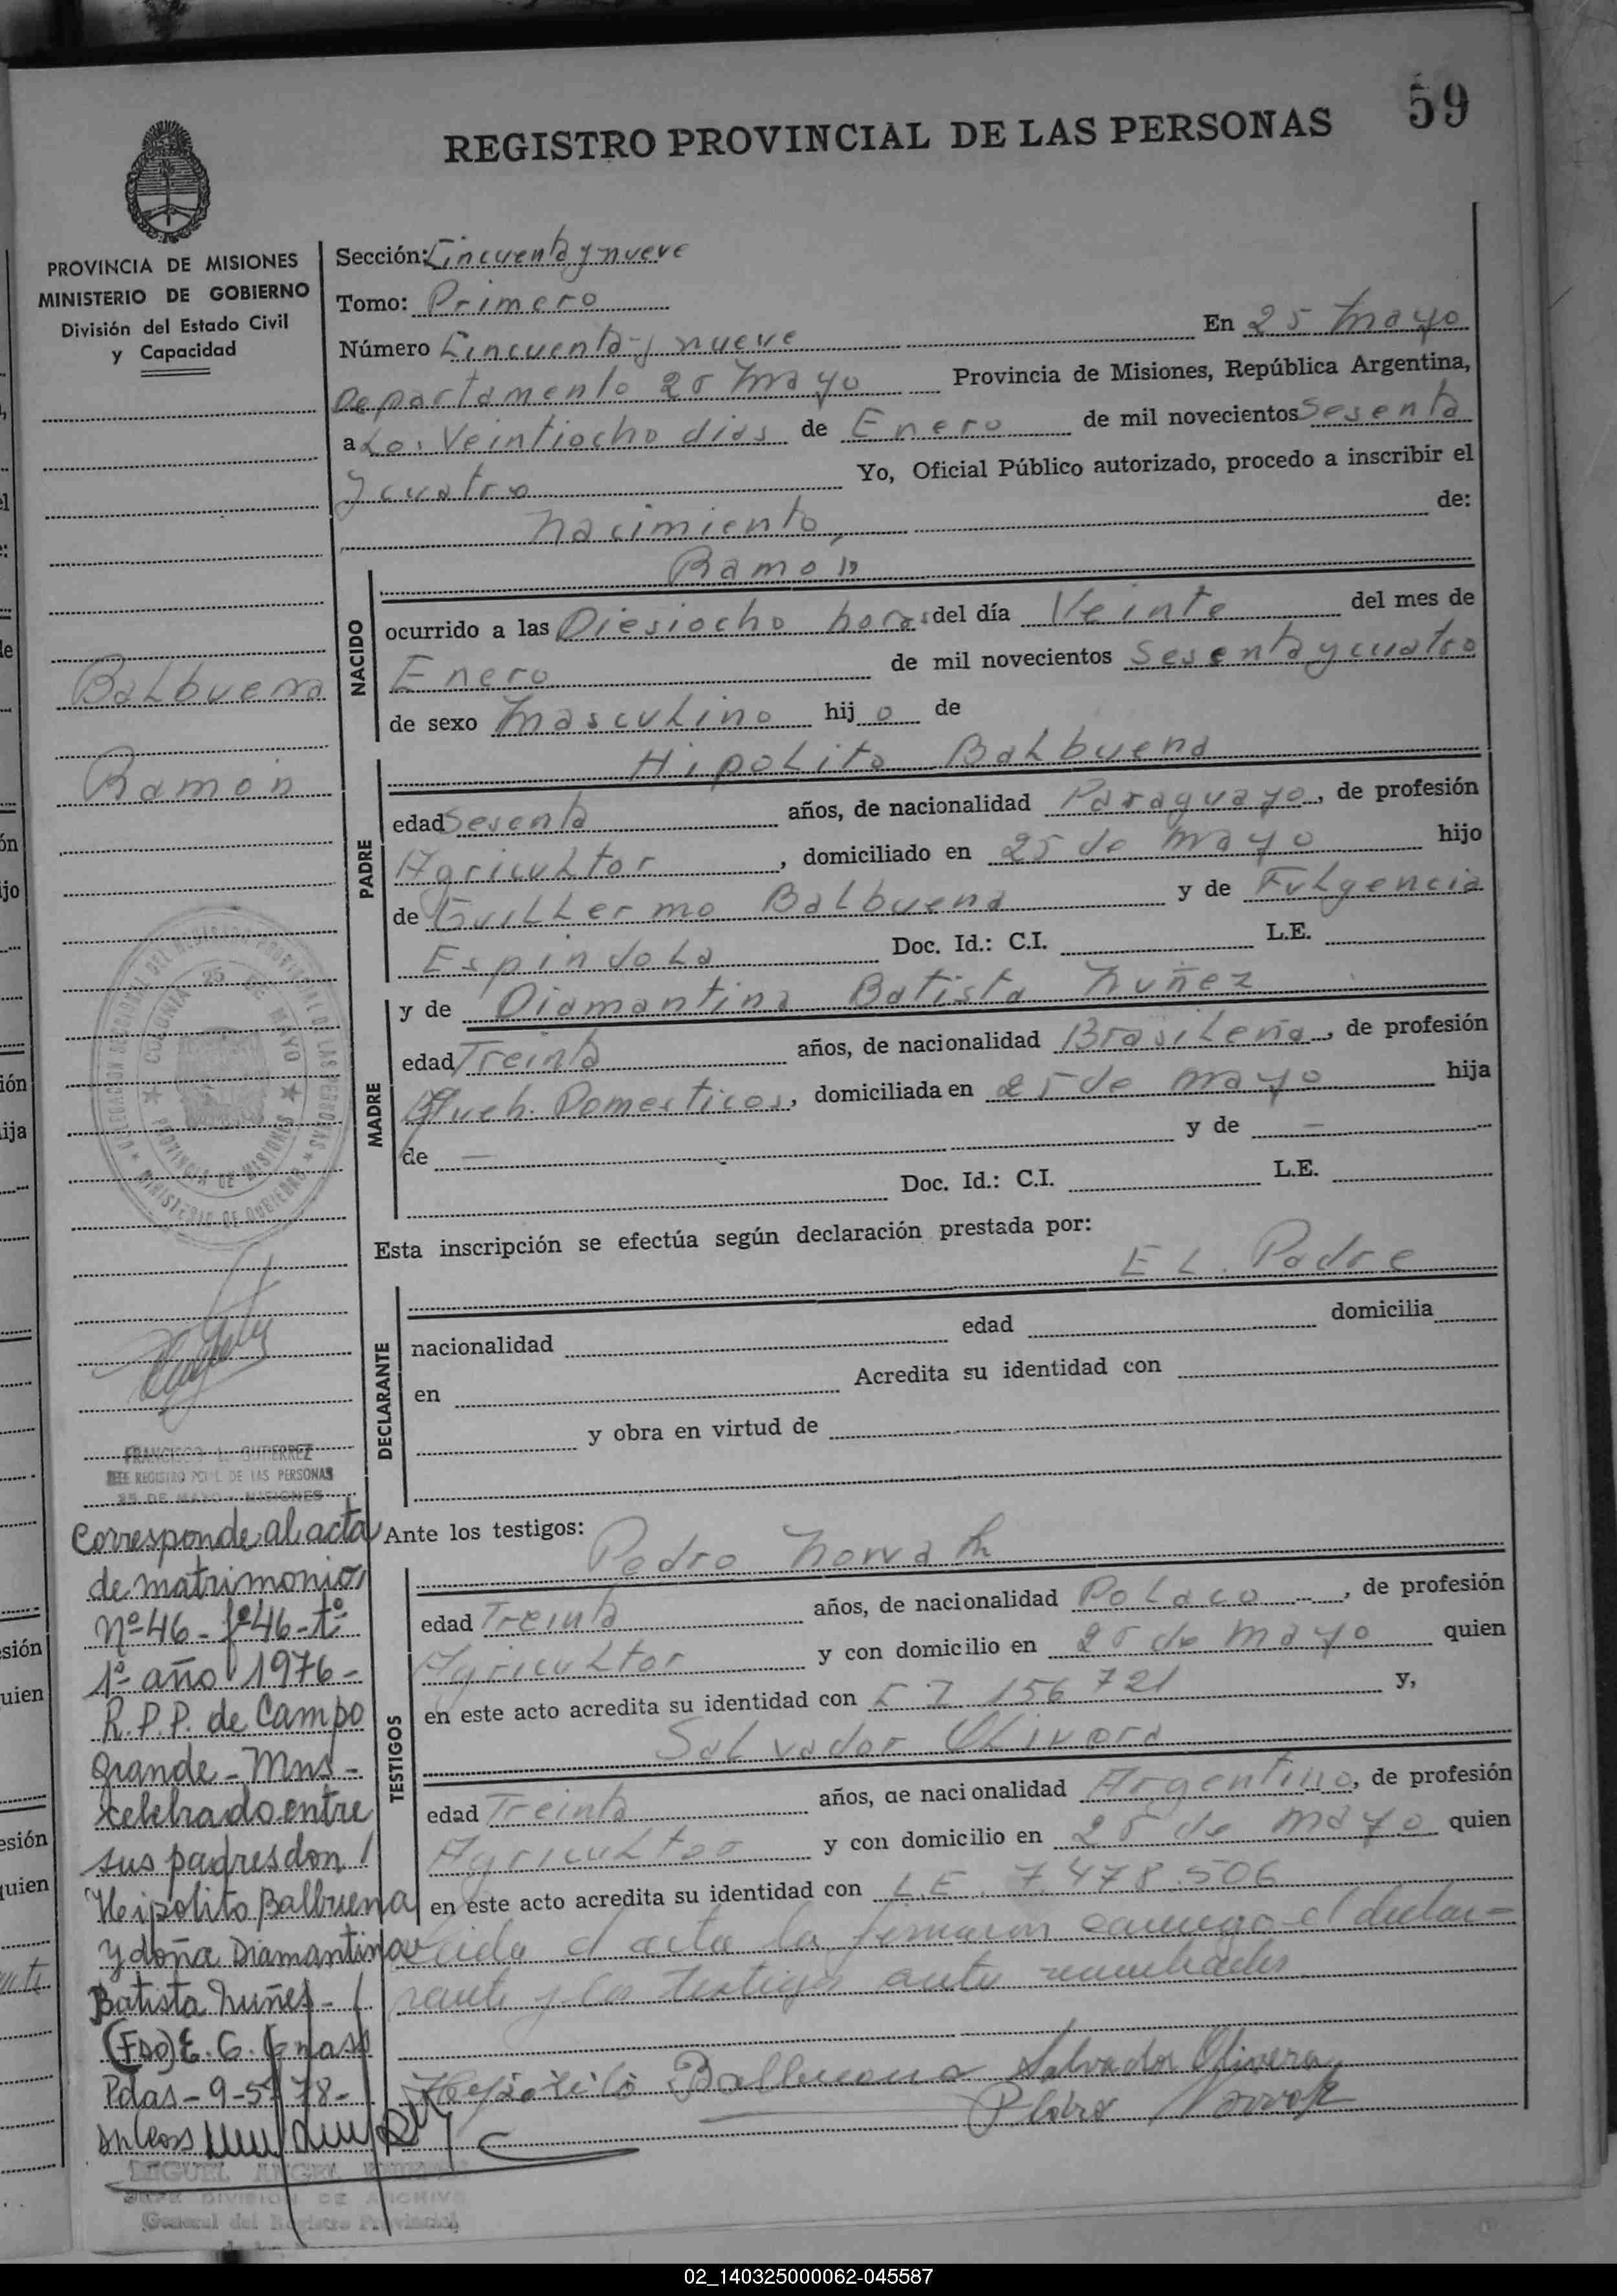 59
REGISTRO PROVINCIAL DE LAS PERSONAS
PROVINCIA DE MISIONES
MINISTERIO DE GOBIERNO
División del Estado Civil
y Capacidad
Sección: Cincuenta y nueve
Tomo: Primero
Número Cincuenta y nueve En 25 Mayo
Departamento 25 Mayo Provincia de Misiones, República Argentina,
a Los Veintiocho dias de Enero de mil novecientos Sesenta
y cuatro Yo, Oficial Público autorizado, procedo a inscribir el
Nacimiento de:
Ramon
NACIDO
ocurrido a las Diesiocho horas del día Veinte del mes de
Enero de mil novecientos Sesenta y cuatro
de sexo Masculino hij o de
Balbuena
Ramon
Hipolito Balbuena
PADRE
edad Sesenta años, de nacionalidad Paraguayo, de profesión
Agricultor, domiciliado en 25 de Mayo hijo
de Guillermo Balbuena y de Fulgencia
Espindola Doc. Id.: C.I. L.E.
y de Diamantina Batista Nuñez
MADRE
edad Treinta años, de nacionalidad Brasileña, de profesión
Queh. Domesticos, domiciliada en 25 de Mayo hija
de — y de —
Doc. Id.: C.I. L.E.
COLONIA 25 DE MAYO
PROVINCIA DE MISIONES
MINISTERIO DE GOBIERNO
Esta inscripción se efectúa según declaración prestada por:
EL Padre
DECLARANTE
nacionalidad edad domicilia
en Acredita su identidad con
y obra en virtud de
FRANCISCO L. GUTIERREZ
JEFE REGISTRO PCIAL DE LAS PERSONAS
25 DE MAYO - MISIONES
Ante los testigos:
Pedro Norvak
TESTIGOS
edad Treinta años, de nacionalidad Polaco, de profesión
Agricultor y con domicilio en 25 de Mayo quien
en este acto acredita su identidad con 156 721 y,
Salvador Olivera
edad Treinta años, de nacionalidad Argentino, de profesión
Agricultor y con domicilio en 25 de Mayo quien
en este acto acredita su identidad con L.E. 7.478.506
Leida el acta la firmaron conmigo el decla-
rante y los testigos ante
Balbuena Salvador Olivera
Pedro Norvak
Corresponde al acta
de matrimonio
nº 46 - fº 46 - tº
1º año 1976 -
R.P.P. de Campo
Grande - Mns -
celebrado entre
sus padres don
Heipolito Balbuena
y doña Diamantina
Batista Nuñes -
(FDO) E. G.
Pdas - 9-5-78 -
MIGUEL ANGEL
JEFE DIVISION DE ARCHIVO
General del Registro Provincial
02_140325000062-045587